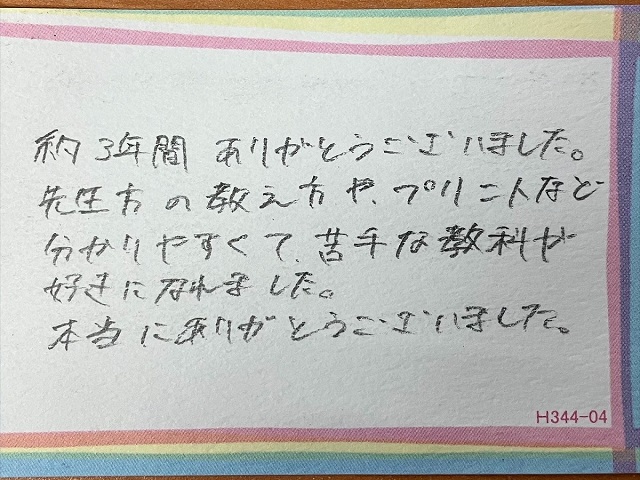 約3年間 ありがとうございました。
先生方の教え方や、プリントなど
分かりやすくて、苦手な教科が
好きになれました。
本当にありがとうございました。
H344-04